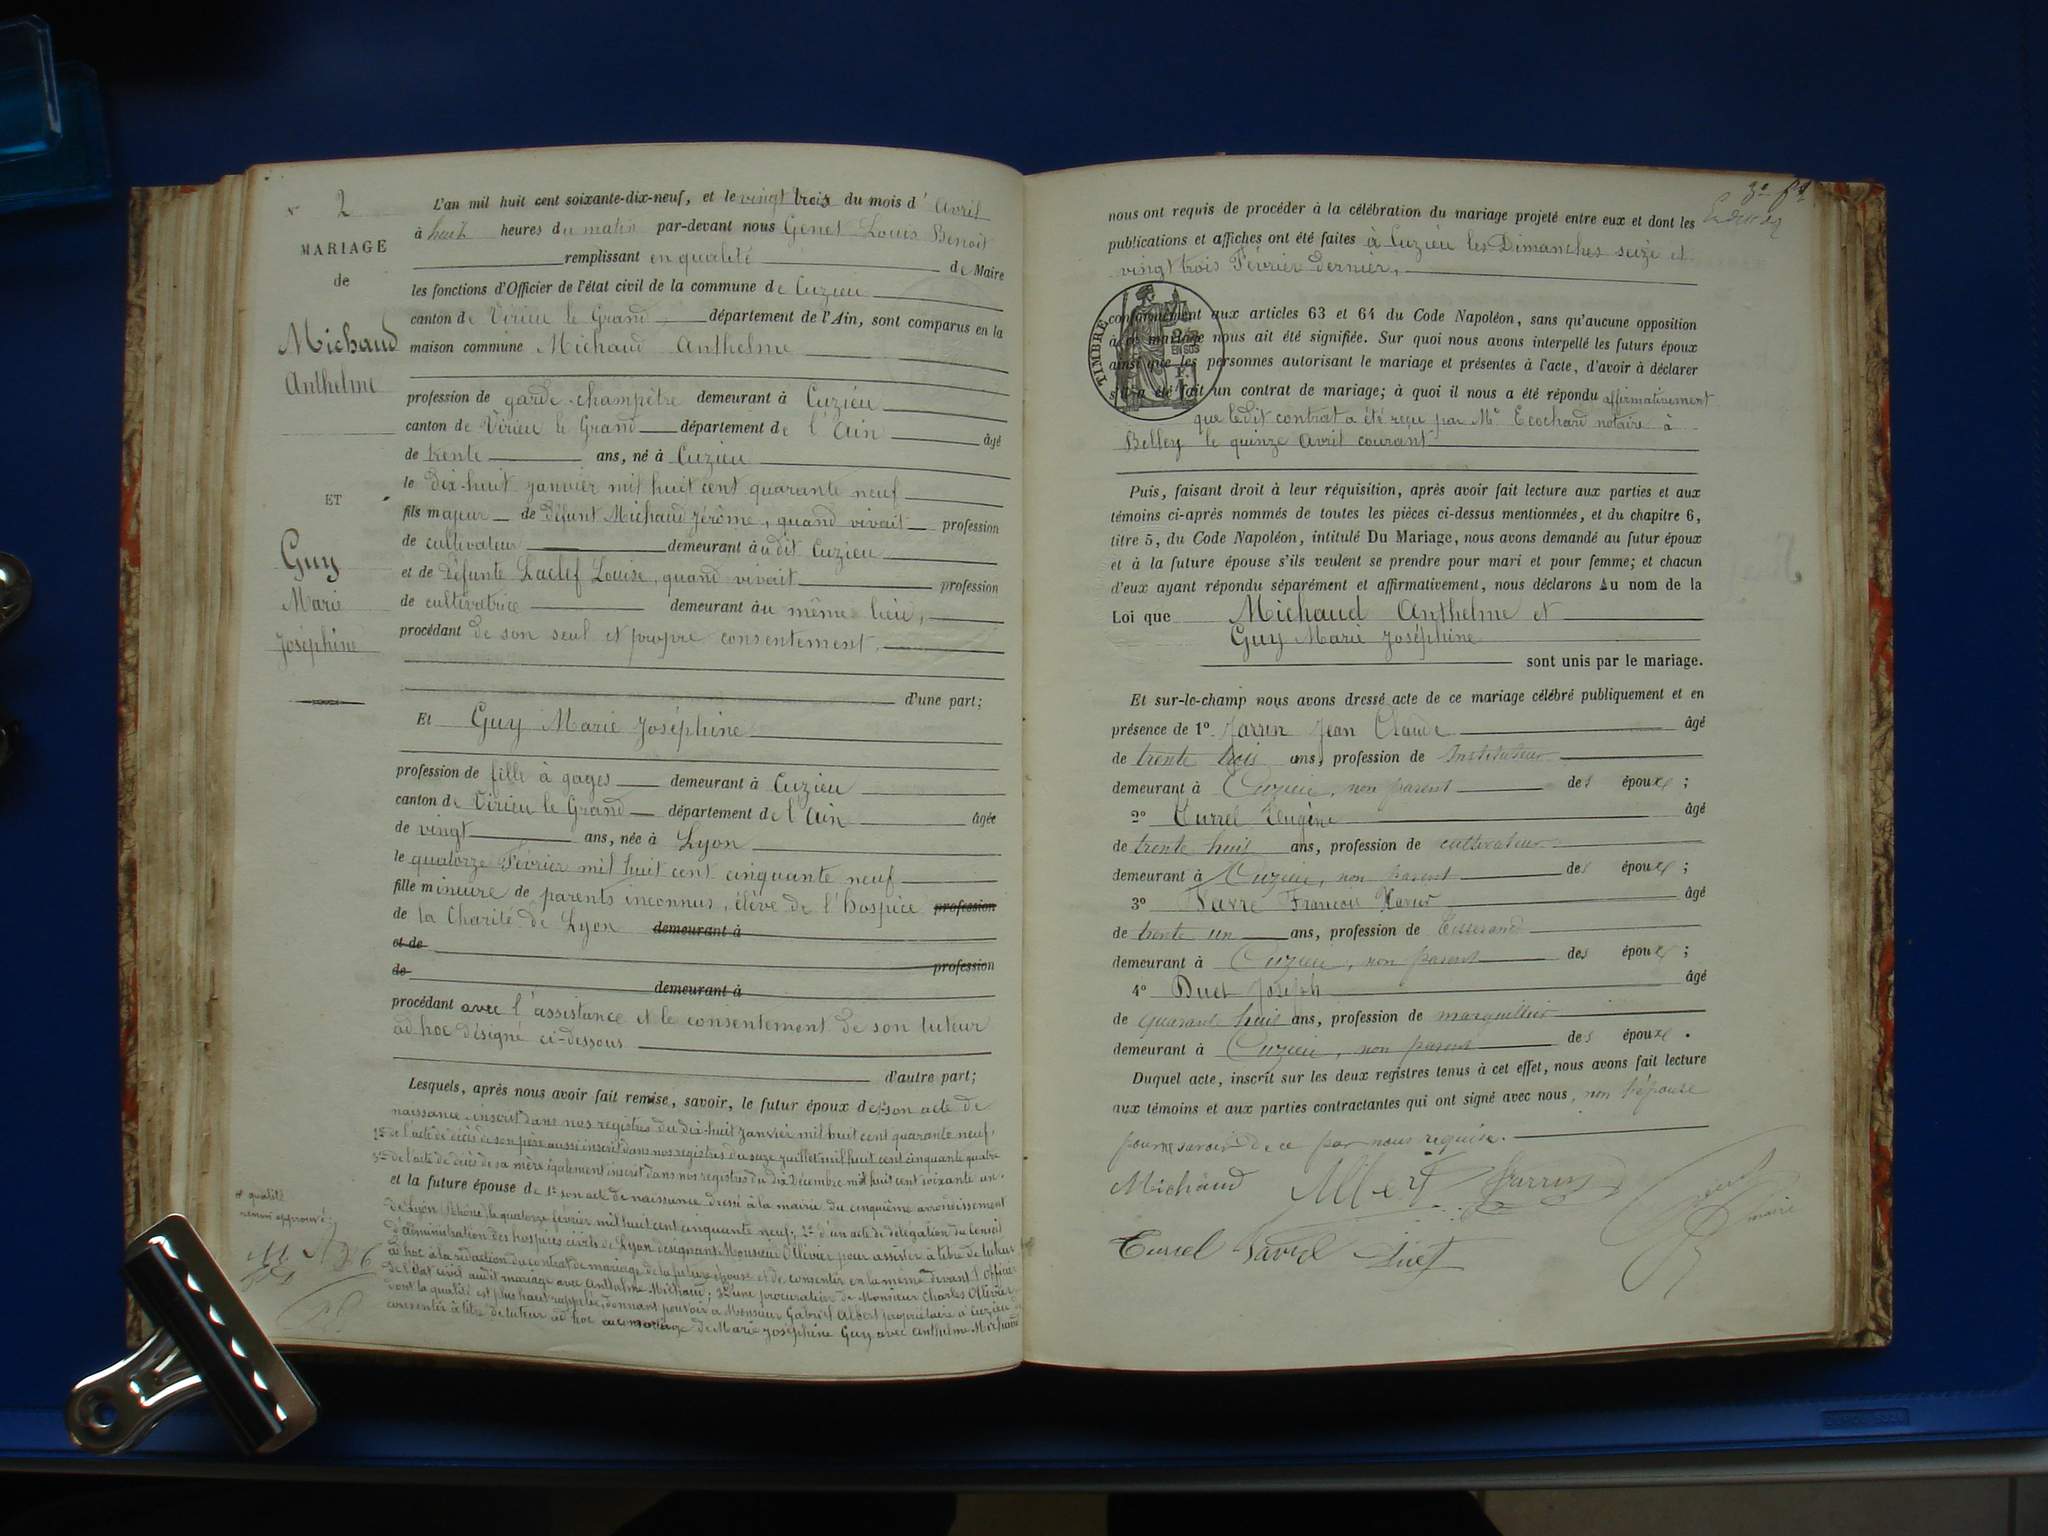 2
MARIAGE
de
Michaud
Anthelme
ET
Guy
Marie
Joséphine
L'an mil huit cent soixante-dix-neuf, et le vingt trois du mois d'Avril
à huit heures du matin par-devant nous Genet Louis Benoit
remplissant en qualité de Maire
les fonctions d'Officier de l'état civil de la commune de Cuzieu
canton de Virieu le Grand département de l'Ain, sont comparus en la
maison commune Michaud Anthelme
profession de garde-champêtre demeurant à Cuzieu
canton de Virieu le Grand département de l'Ain âgé
de trente ans, né à Cuzieu
le dix-huit janvier mil huit cent quarante neuf
fils majeur de défunt Michaud Jérôme, quand vivait profession
de cultivateur demeurant audit Cuzieu
et de défunte Laclef Louise, quand vivait profession
de cultivatrice demeurant au même lieu,
procédant de son seul et propre consentement,
d'une part;
Et Guy Marie Joséphine
profession de fille à gages demeurant à Cuzieu
canton de Virieu le Grand département de l'Ain âgée
de vingt ans, née à Lyon
le quatorze Février mil huit cent cinquante neuf
fille mineure de parents inconnus, élève de l'hospice profession
de la Charité de Lyon demeurant à
et de
de profession
demeurant à
procédant avec l'assistance et le consentement de son tuteur
ad hoc désigné ci-dessous
d'autre part;
Lesquels, après nous avoir fait remise, savoir, le futur époux de 1° son acte de
naissance inscrit dans nos registres du dix-huit janvier mil huit cent quarante neuf,
2° de l'acte de décès de son père aussi inscrit dans nos registres du seize juillet mil huit cent cinquante quatre
3° de l'acte de décès de sa mère également inscrit dans nos registres du dix Décembre mil huit cent soixante un.
et la future épouse de 1° son acte de naissance dressé à la mairie du cinquième arrondissement
de Lyon (Rhône) le quatorze février mil huit cent cinquante neuf; 2° d'un acte de délégation du Conseil
d'administration des hospices civils de Lyon désignant Monsieur Ollivier pour assister à titre de tuteur
ad hoc à la rédaction du contrat de mariage de la future épouse et de consentir en la même devant l'Officier
de l'état civil audit mariage avec Anthelme Michaud; 3° d'une procuration de Monsieur Charles Ollivier
dont la qualité est plus haut rappelée, donnant pouvoir à Monsieur Gabriel Albert propriétaire à Cuzieu de
consentir à titre de tuteur ad hoc au mariage de Marie Joséphine Guy avec Anthelme Michaud
qualité
renvoi approuvé
nous ont requis de procéder à la célébration du mariage projeté entre eux et dont les
publications et affiches ont été faites à Cuzieu les Dimanches seize et
vingt trois Février dernier,
TIMBRE
conformément aux articles 63 et 64 du Code Napoléon, sans qu'aucune opposition
à ce mariage nous ait été signifiée. Sur quoi nous avons interpellé les futurs époux
ainsi que les personnes autorisant le mariage et présentes à l'acte, d'avoir à déclarer
s'il a été fait un contrat de mariage; à quoi il nous a été répondu affirmativement
que ledit contrat a été reçu par Me Ecochard notaire à
Belley le quinze Avril courant
Puis, faisant droit à leur réquisition, après avoir fait lecture aux parties et aux
témoins ci-après nommés de toutes les pièces ci-dessus mentionnées, et du chapitre 6,
titre 5, du Code Napoléon, intitulé Du Mariage, nous avons demandé au futur époux
et à la future épouse s'ils veulent se prendre pour mari et pour femme; et chacun
d'eux ayant répondu séparément et affirmativement, nous déclarons Au nom de la
Loi que Michaud Anthelme et
Guy Marie Joséphine
sont unis par le mariage.
Et sur-le-champ nous avons dressé acte de ce mariage célébré publiquement et en
présence de 1° Jarrin Jean Claude âgé
de trente trois ans, profession de Instituteur
demeurant à Cuzieu, non parent des époux;
2° Currel Eugène âgé
de trente huit ans, profession de cultivateur
demeurant à Cuzieu, non parent des époux;
3° Favre François Xavier âgé
de trente un ans, profession de tisserand
demeurant à Cuzieu, non parent des époux;
4° Duet Joseph âgé
de quarante huit ans, profession de marguillier
demeurant à Cuzieu, non parent des époux.
Duquel acte, inscrit sur les deux registres tenus à cet effet, nous avons fait lecture
aux témoins et aux parties contractantes qui ont signé avec nous, non l'épouse
pour ne savoir de ce par nous requise.
Michaud Albert Jarrin
Currel Favre Duet
maire